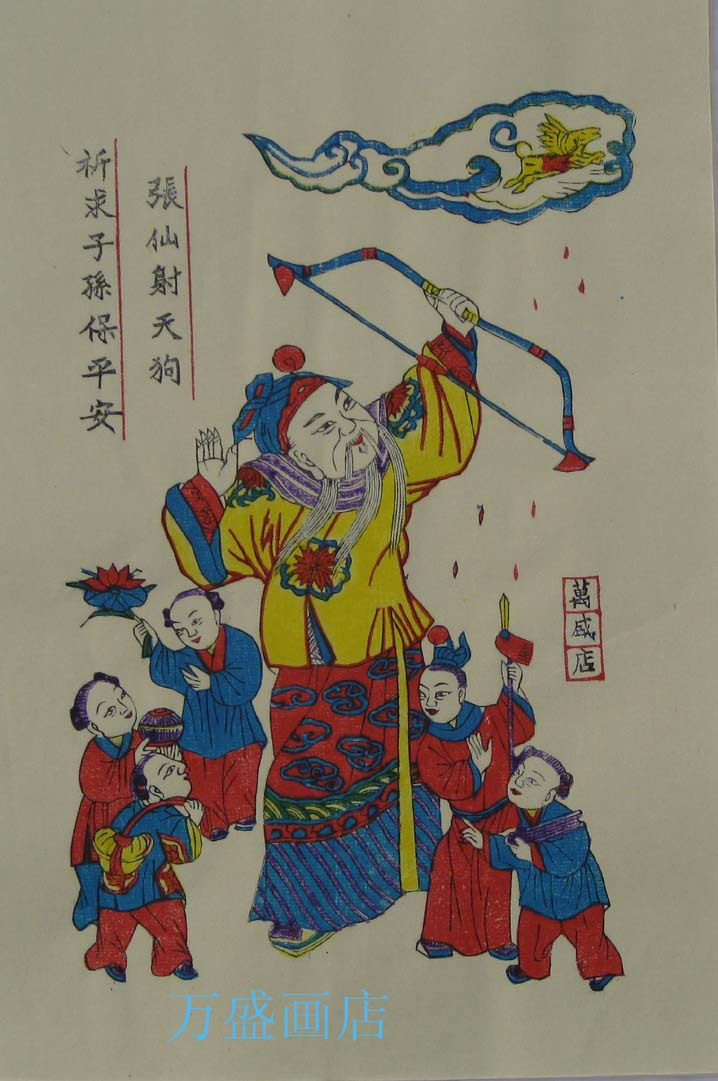 張仙射天狗
祈求子孫保平安
萬盛店
万盛画店